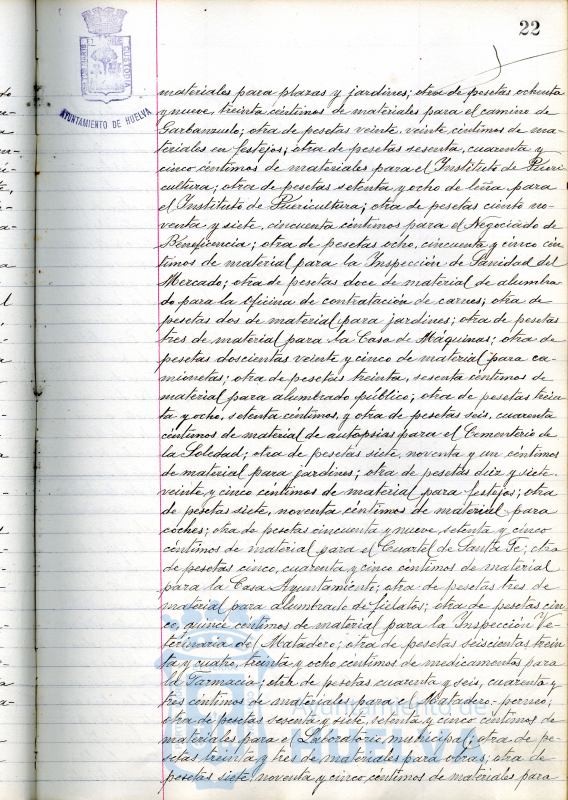 22
AYUNTAMIENTO DE HUELVA
materiales para plazas y jardines; otra de pesetas ochenta
y nueve, treinta céntimos de materiales para el camino de
Garbanzuelo; otra de pesetas veinte, veinte céntimos de ma-
teriales en festejos; otra de pesetas sesenta, cuarenta y
cinco céntimos de materiales para el Instituto de Pueri
cultura; otra de pesetas setenta y ocho de leña para
el Instituto de Puericultura; otra de pesetas ciento no-
venta y siete, cincuenta céntimos para el Negociado de
Beneficencia; otra de pesetas ocho, cincuenta y cinco cén
timos de material para la Inspección de Sanidad del
Mercado; otra de pesetas doce de material de alumbra
do para la oficina de contratación de carnes; otra de
pesetas dos de material para jardines; otra de pesetas
tres de material para la Casa de Máquinas; otra de
pesetas doscientas veinte y cinco de material para ca-
mionetas; otra de pesetas treinta, sesenta céntimos de
material para alumbrado público; otra de pesetas trein
ta y ocho, setenta céntimos, y otra de pesetas seis, cuarenta
céntimos de material de autopsias para el Cementerio de
la Soledad; otra de pesetas siete, noventa y un céntimos
de material para jardines; otra de pesetas diez y siete,
veinte y cinco céntimos de material para festejos; otra
de pesetas siete, noventa céntimos de material para
coches; otra de pesetas cincuenta y nueve, setenta y cinco
céntimos de material para el Cuartel de Santa Fe; otra
de pesetas cinco, cuarenta y cinco céntimos de material
para la Casa Ayuntamiento; otra de pesetas tres de
material para alumbrado de fielatos; otra de pesetas cin
co, quince céntimos de material para la Inspección Ve-
terinaria del Matadero; otra de pesetas seiscientas trein
ta y cuatro, treinta y ocho céntimos de medicamentos para
la Farmacia; otra de pesetas cuarenta y seis, cuarenta y
tres céntimos de materiales para el Matadero perneo;
otra de pesetas sesenta y siete, setenta y cinco céntimos de
materiales para el Laboratorio municipal; otra de pe-
setas treinta y tres de materiales para obras; otra de
pesetas siete, noventa y cinco céntimos de materiales para
Ayuntamiento de
HUELVA